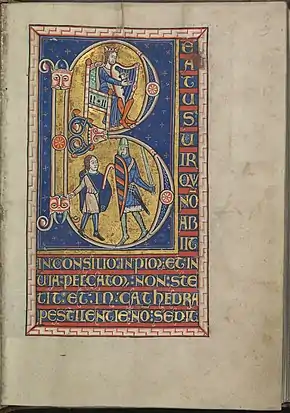 B
E
ATUS
UIR
QVI
NO
AB
IIT
IN CONSILIO: INPIOꝜ: ET IN
VIA PECCATOꝜ: NON: STE
TIT: ET: IN: CATHEDRA
PESTILENTIE: NO: SEDIT